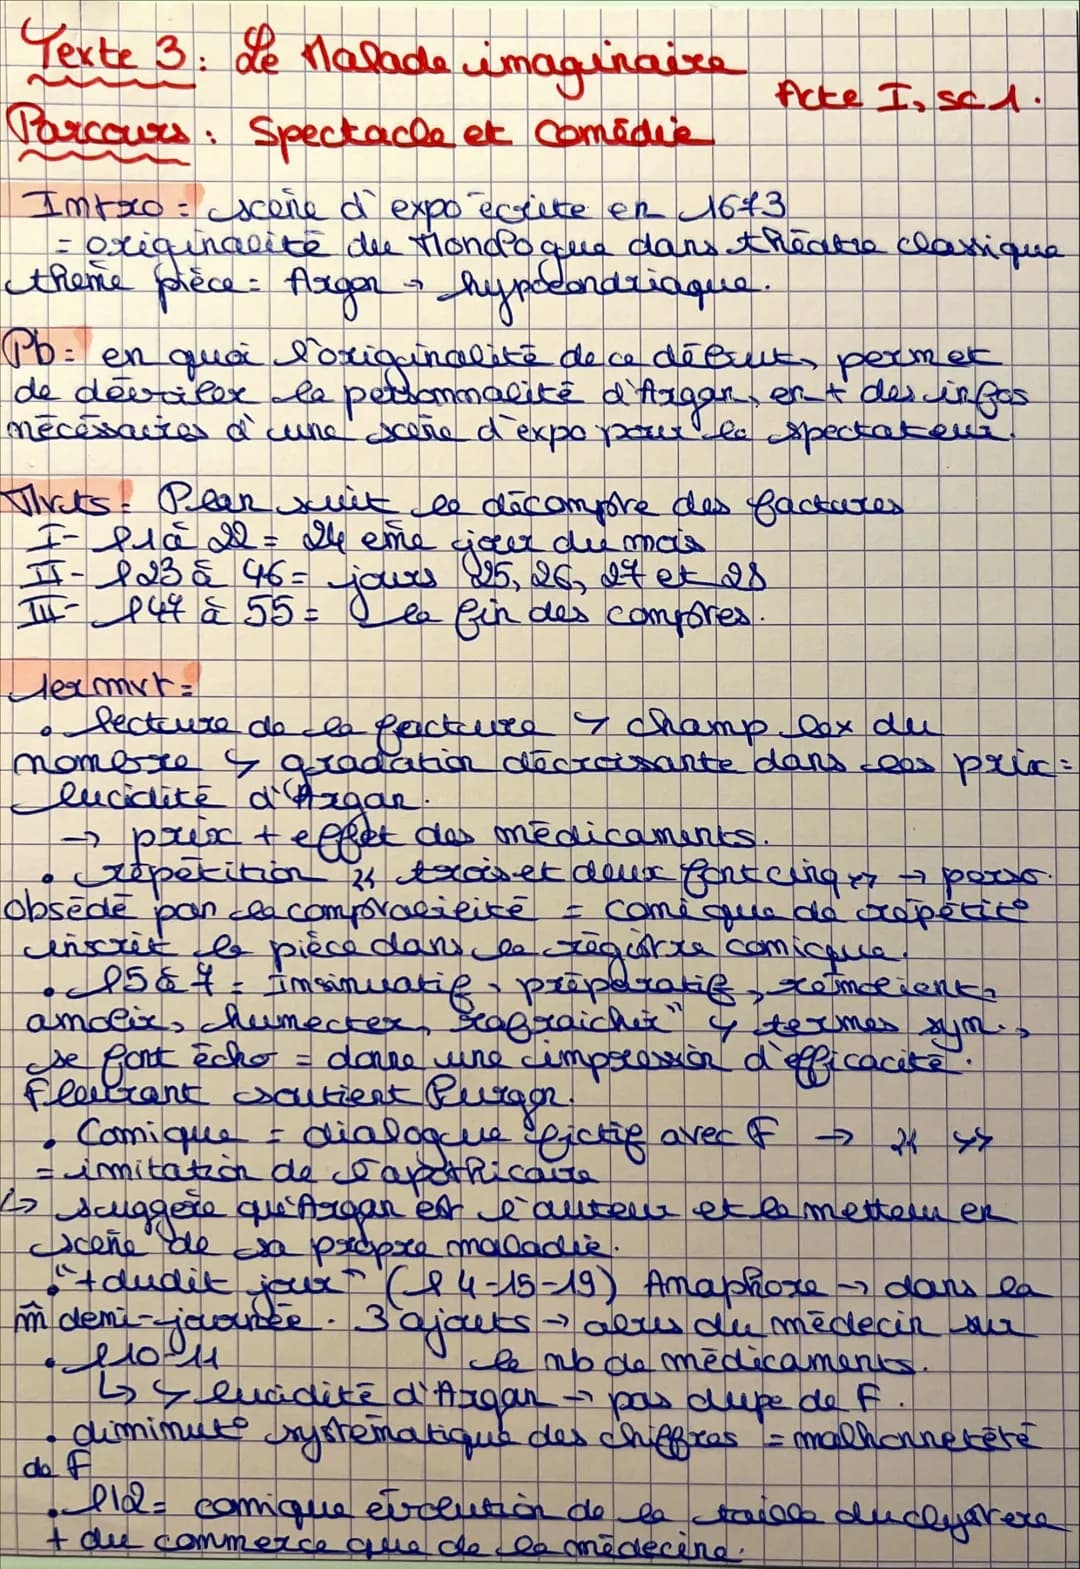 Texte 3: Le Malade imaginaire
Acte I, sc 1.
Parcours: Spectacle et comédie
Intro = scène d'expo écrite en 1673
= originalité du Monologue dans théâtre classique
thème pièce = Argan → hypocondriaque.
Pb: en quoi l'originalité de ce début, permet
de dévoiler la personnalité d'Argan, en + des infos
nécéssaires d'une scène d'expo pour le spectateur.
Mvts: Plan suit le décompte des factures
I- l1 à 22 = 24 ème jour du mois
II- l23 à 46 = jours 25, 26, 27 et 28
III- l47 à 55 = la fin des comptes.
1er mvt =
• lecture de la facture ↳ champ lex du
nombre ↳ gradation décroissante dans les prix =
lucidité d'Argan.
→ prix + effet des médicaments.
• répétition << trois et deux font cinq >> → perso.
obsédé par la comptabilité = comique de répétit°
inscrit la pièce dans le régistre comique.
• l5 à 7 = Insinuatif, préparatif, rémolient,
amolir, humecter, rafraichir" ↳ termes sym.,
se font écho = donne une impression d'efficacité.
Fleurant soutient Purgon.
• Comique = dialogue fictif avec F → << >>
= imitation de l'apothicaire
↳ suggère qu'Argan est l'auteur et le metteur en
scène de sa propre maladie.
• "+ dudit jour" (l 4-15-19) Anaphore → dans la
m̂ demi-journée. 3 ajouts → abus du médecin sur
le nb de médicaments.
• l10-11
↳ ↳ lucidité d'Argan → pas dupe de F.
• diminut° systématique des chiffres = malhonnêteté
de F
• l12 = comique évolution de la taille du clystère
+ du commerce que de la médecine.